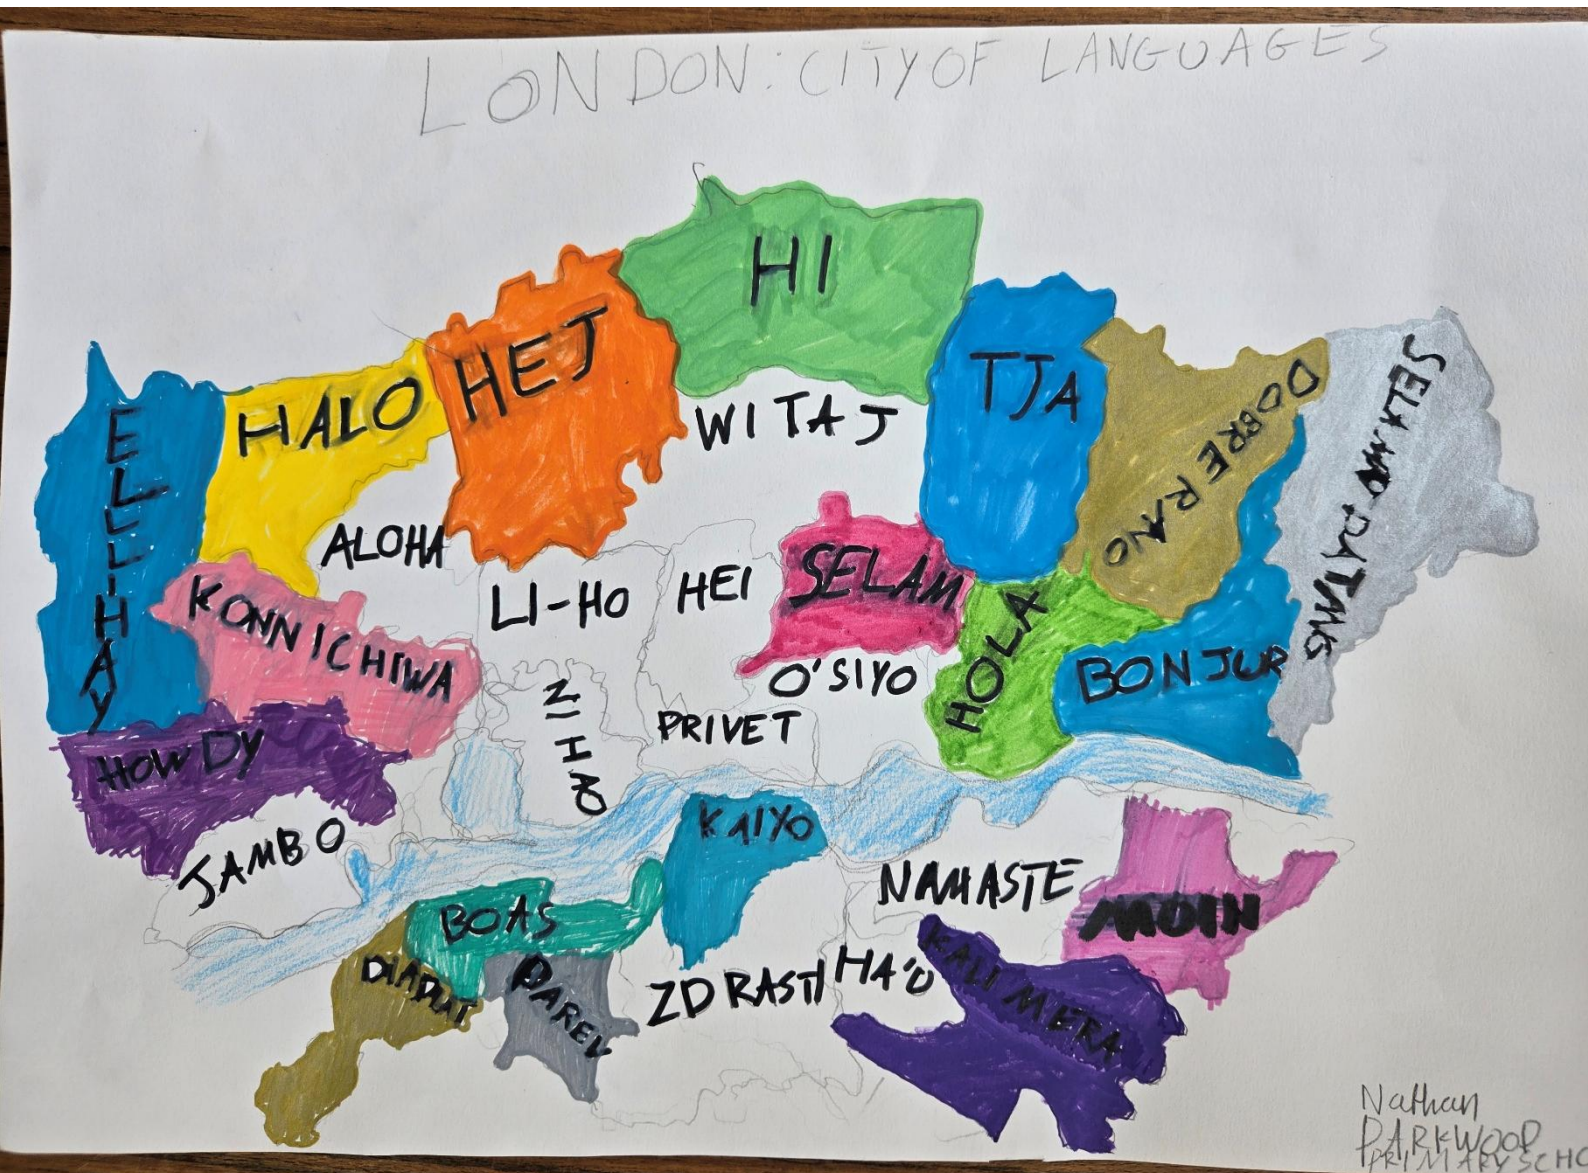 LONDON: CITY OF LANGUAGES
HI
HEJ
HALO
TJA
WITAJ
DOBRE RANO
ELLLIHAY
ALOHA
KONNICHIWA
LI-HO
HEI
SELAM
HOLA
O'SIYO
BONJUR
NIHAO
PRIVET
HOWDY
JAMBO
KAIYO
BOAS
NAMASTE
MOIN
PAREV
ZDRASTI
HA'O
KALIMERA
Nathan
PARKWOOD
PRIMARY SCHO